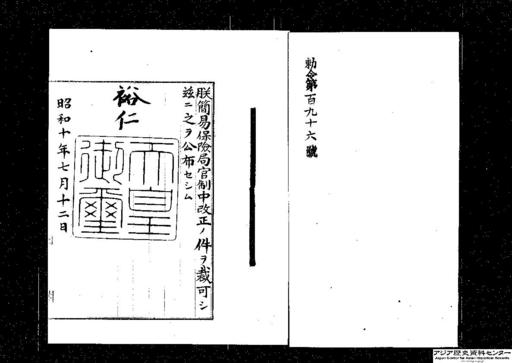 勅令第百九十六號
朕簡易保險局官制中改正ノ件ヲ裁可シ
玆ニ之ヲ公布セシム
裕仁
天皇御璽
昭和十年七月十二日
アジア歴史資料センター
Japan Center for Asian Historical Records